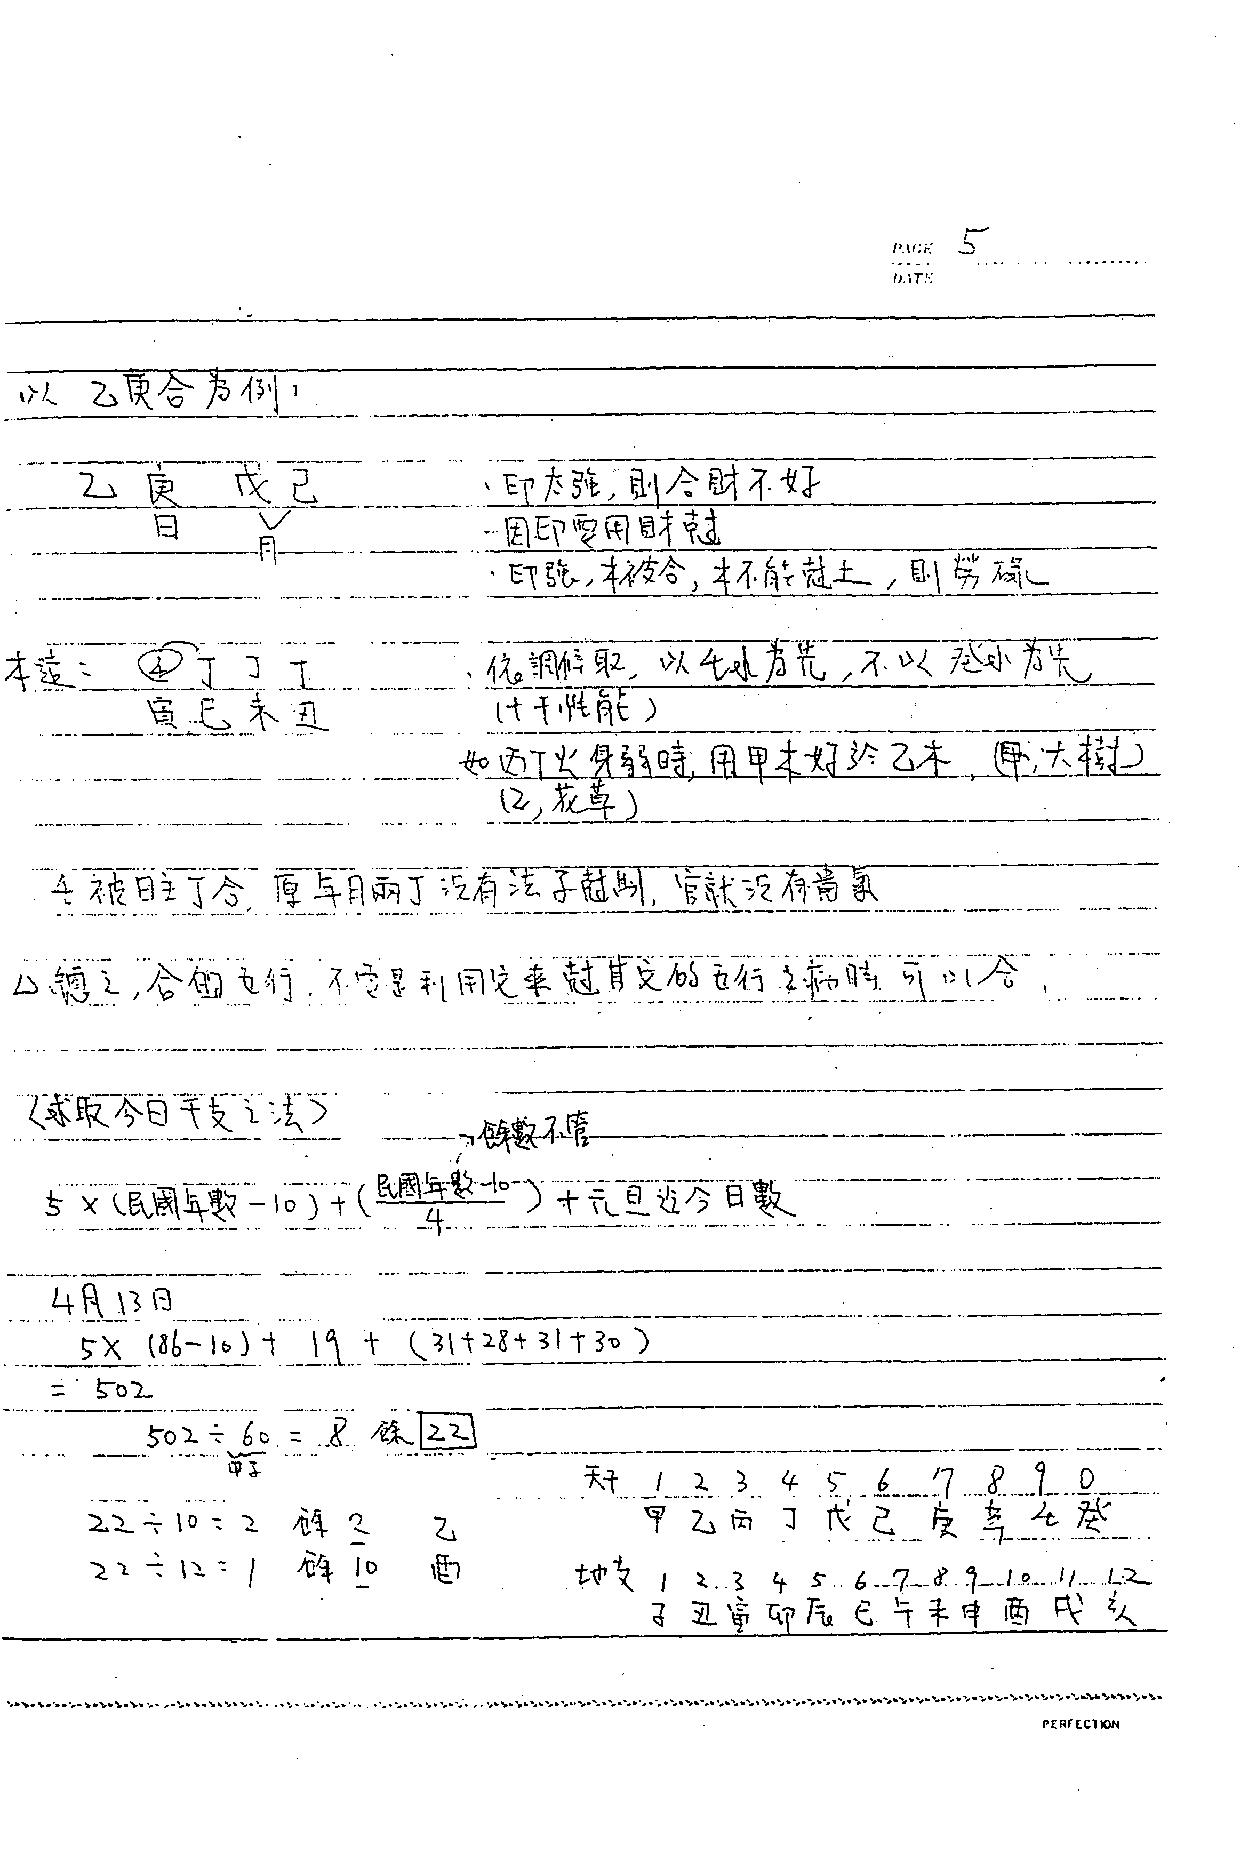 PAGE 5
DATE
以 乙庚合為例:
乙 庚 戊 己
日 月
· 印太強, 則合財不好
- 因印要用財剋
· 印強, 木被合, 木不能剋土, 則勞碌
本造: 壬 丁 丁 丁
寅 巳 未 丑
· 依調候取, 以壬水為先, 不以癸水為先
(十干性能)
如丙丁火身弱時, 用甲木好於乙木. (甲, 大樹)
(乙, 花草)
壬被日主丁合, 原年月兩丁沒有法子剋制, 官就沒有貴氣
△ 總之, 合的五行, 不定是利用它來剋其它的五行之病時, 可以合.
〈求取今日干支之法〉
→餘數不管
5 × (民國年數-10) + (民國年數-10 / 4) + 元旦迄今日數
4月13日
5× (86-10) + 19 + (31+28+31+30)
= 502
502 ÷ 60 = 8 餘 22
甲子
22 ÷ 10 = 2 餘 2 乙
22 ÷ 12 = 1 餘 10 酉
天干 1 2 3 4 5 6 7 8 9 0
甲 乙 丙 丁 戊 己 庚 辛 壬 癸
地支 1 2 3 4 5 6 7 8 9 10 11 12
子 丑 寅 卯 辰 巳 午 未 申 酉 戌 亥
PERFECTION